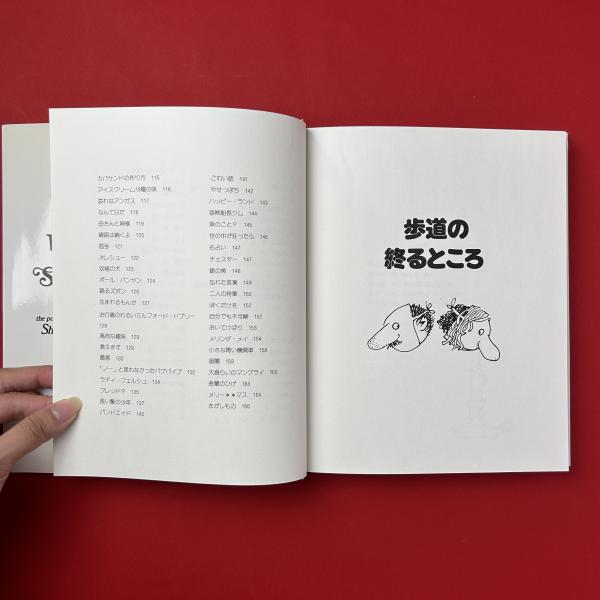 the po
Sh
カバサンドの作り方 115
アイスクリーム18種の味 116
哀れなアンガス 117
なんて日だ 118
母さんと神様 119
線路は続くよ 120
121
オレシュー 122
双尾の犬 123
ポール・バンヤン 124
踊るズボン 126
生まれるもんか 127
お行儀のわるいミルフォード・ドプリー
128
高尚な趣味 128
教えます 129
130
「ノー」と言わなかったバグパイプ 132
ラディ・フェルシュ 134
フレッド? 135
長い髪の少年 137
バンドエイド 140
こわい話 141
やせっぽち 142
ハッピー・ランド 143
海賊船長ジム 144
頭のこと? 145
世の中が狂ったら 146
石占い 147
チェスター 148
銀の魚 148
忘れた言葉 149
二人の将軍 150
ぼくだけを 152
自分でも不可解 152
おいてけぼり 153
メリンダ・メイ 154
小さな青い機関車 158
暗闇 159
大食らいのマングライ 160
吾輩のひげ 163
メリー＊＊マス 164
さがしもの 166
歩道の
終るところ